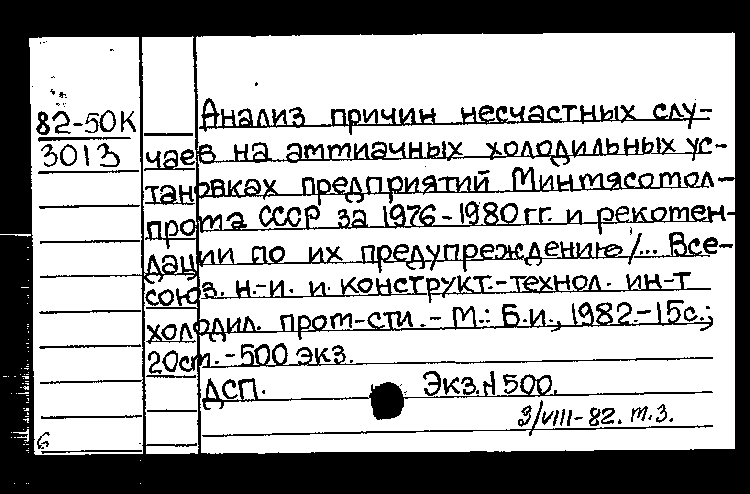 82-50К
3013
Анализ причин несчастных слу-
чаев на аммиачных холодильных ус-
тановках предприятий Минмясомол-
прома СССР за 1976-1980 гг. и рекомен-
дации по их предупреждению /... Все-
союз. н.-и. и конструкт.-технол. ин-т
холодил. пром-сти. - М.: Б.и., 1982.-15с.;
20см. - 500 экз.
ДСП. Экз. N 500.
3/VIII-82. т.3.
6